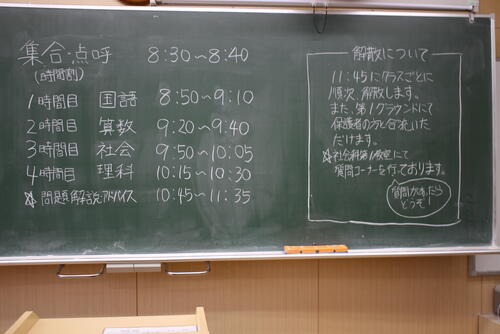 集合・点呼 8:30～8:40
(時間割)
1時間目 国語 8:50～9:10
2時間目 算数 9:20～9:40
3時間目 社会 9:50～10:05
4時間目 理科 10:15～10:30
☆問題解説アドバイス 10:45～11:35
解散について
11:45にクラスごとに
順次、解散します。
また、第1グラウンドにて
保護者の方と合流いた
だけます。
☆社会科第1教室にて
質問コーナーを行っております。
質問があったら
どうぞ!